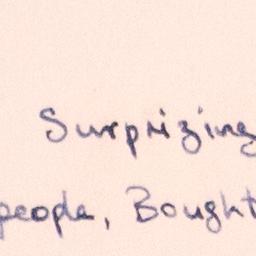 Surprizing
people, Bought